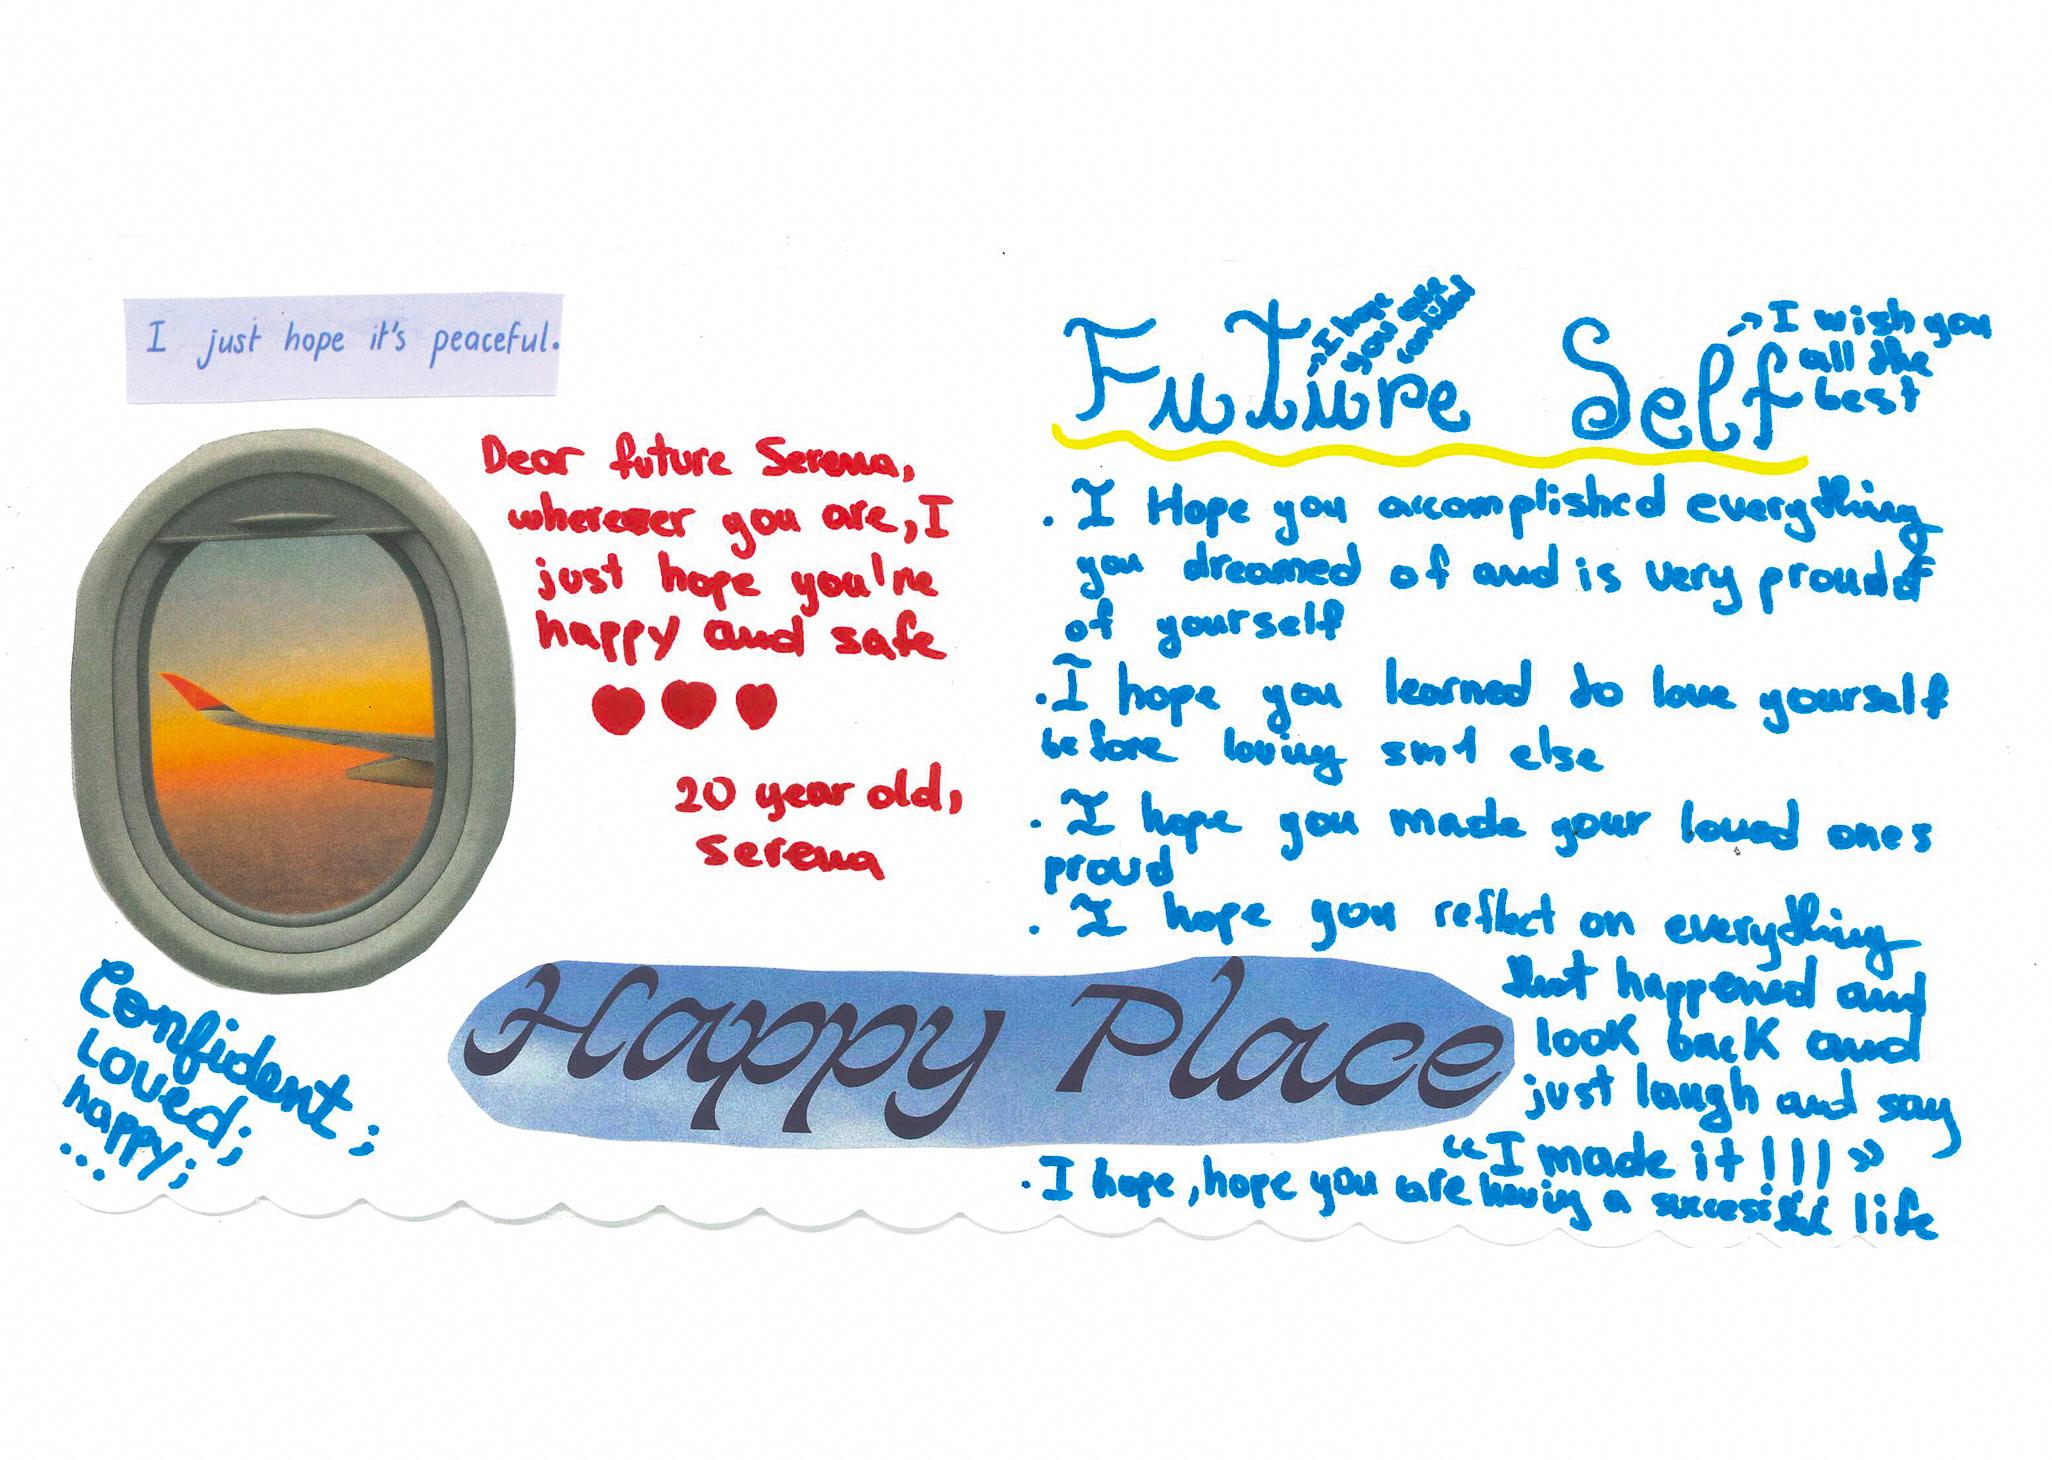 I just hope it's peaceful.
Dear future Serena,
wherever you are, I
just hope you're
happy and safe
20 year old,
Serena
Confident;
Loved;
happy;
...
Happy Place
Future Self
I hope
you are
I wish you
all the
best
. I Hope you accomplished everything
you dreamed of and is very proud
of yourself
. I hope you learned to love yourself
before loving sm1 else
. I hope you made your loved ones
proud
. I hope you reflect on everything
that happened and
look back and
just laugh and say
"I made it!!!"
. I hope, hope you are having a successful life